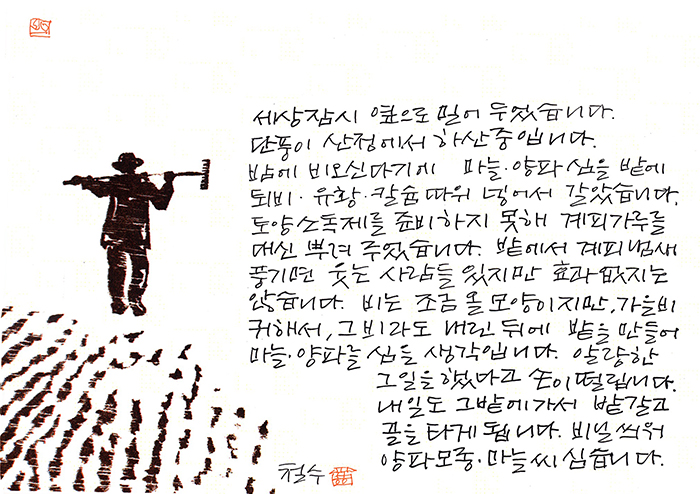 세상잠시 옆으로 밀어 두었습니다.
단풍이 산정에서 하산중입니다.
밤에 비오신다기에 마늘·양파 심을 밭에
퇴비·유황·칼슘 따위 넣어서 갈았습니다.
토양소독제를 준비하지 못해 계피가루를
대신 뿌려 주었습니다. 밭에서 계피냄새
풍기면 웃는 사람들 있지만 효과 없지는
않습니다. 비는 조금 올 모양이지만, 가을비
귀해서, 그 비라도 내린 뒤에 밭을 만들어
마늘·양파를 심을 생각입니다. 알량한
그 일을 했다고 손이 떨립니다.
내일도 그밭에 가서 밭갈고
골을 타게 됩니다. 비닐 씌워
양파모종·마늘씨 심습니다.
철수